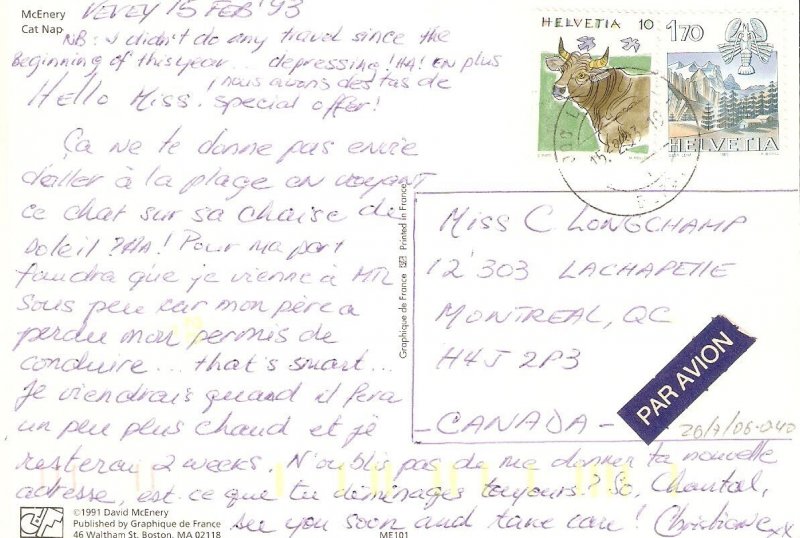 McEnery
Cat Nap
VEVEY 15 FEB '93
NB: I didn't do any travel since the
Beginning of this year... depressing! HA! EN plus
nous avons des tas de
Hello Miss. special offer!
Ça ne te donne pas envie
d'aller à la plage en voyant
ce chat sur sa chaise de
soleil? HA! Pour ma part
faudra que je vienne à MTL
sous peu car mon père a
perdu mon permis de
conduire... that's smart...
Je viendrais quand il fera
un peu plus chaud et je
resterai 2 weeks. N'oublis pas de me donner ta nouvelle
adresse, est-ce que tu déménages toujours? So, Chantal,
see you soon and take care! Christiane xx
©1991 David McEnery
Published by Graphique de France
46 Waltham St. Boston, MA 02118
ME101
Graphique de France Printed in France
HELVETIA 10
170
HELVETIA
15.2.93
Miss C. LONGCHAMP
12'303 LACHAPELLE
MONTREAL, QC
H4J 2P3
-CANADA-
PAR AVION
26/7/06-040